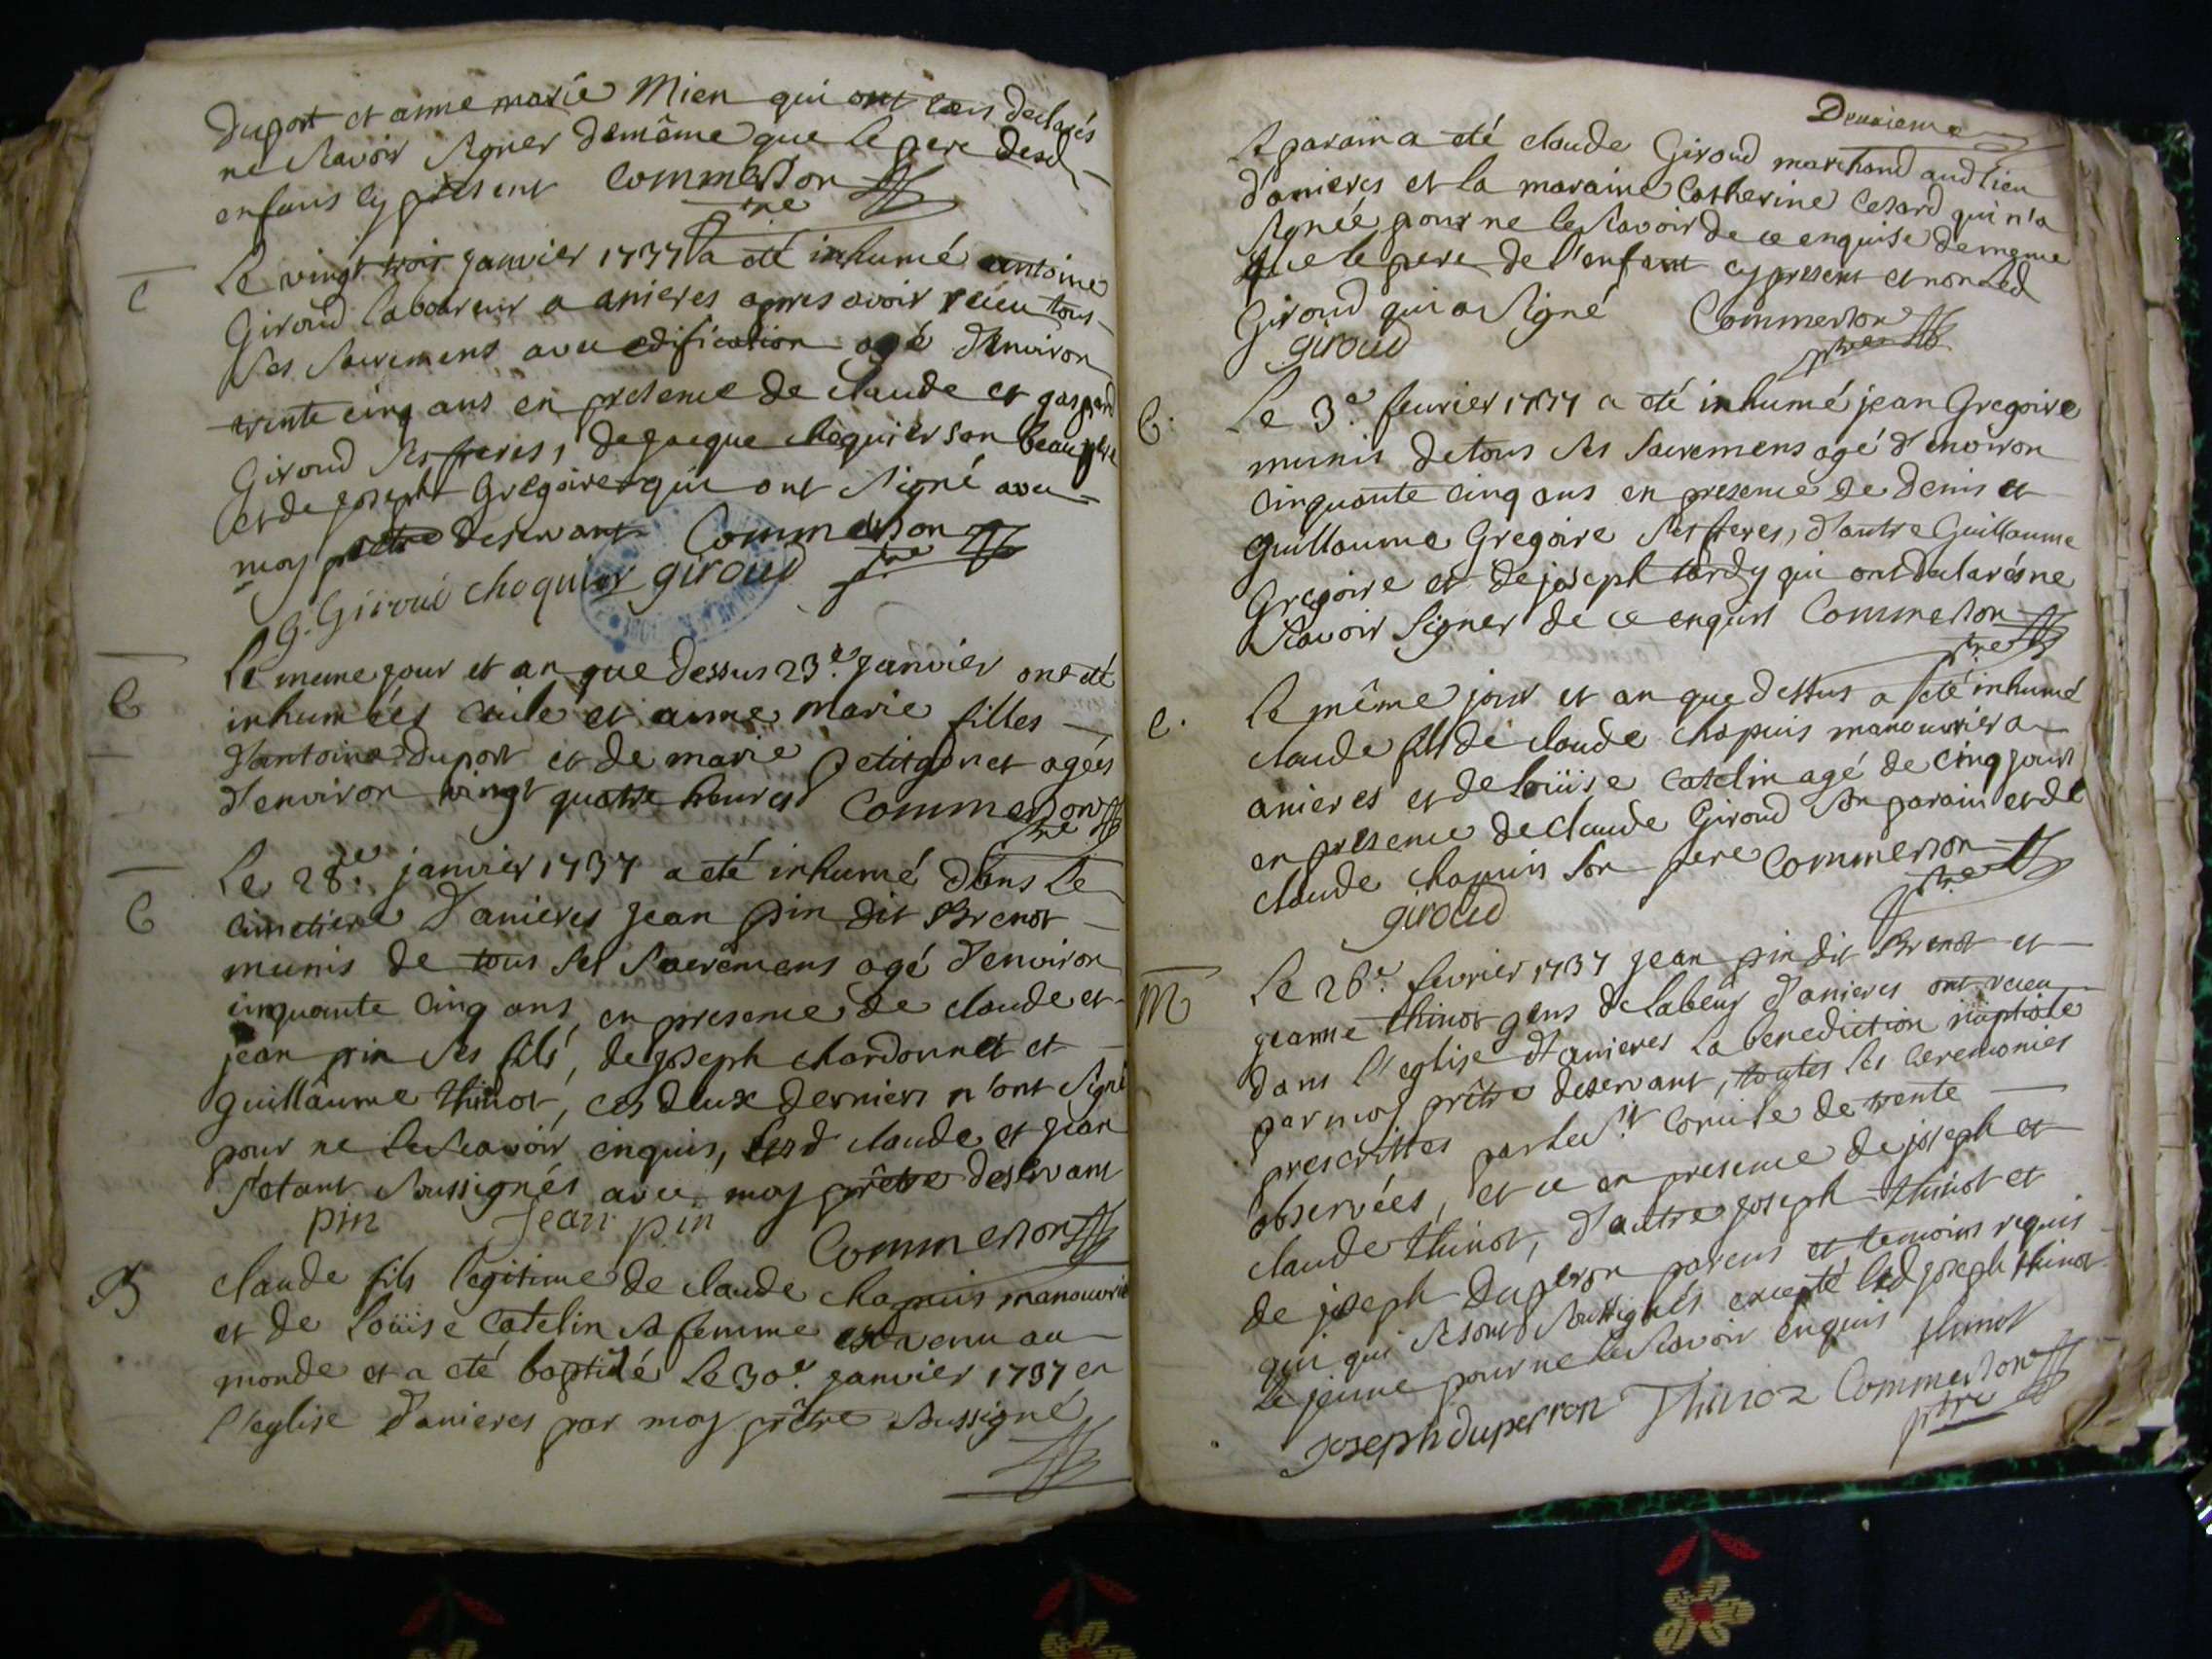 duport et anne marie Mien qui ont tous declarés
ne sçavoir signer demême que le pere desd
enfans cy present Commerson
ptre
C
Le vingt trois janvier 1737 a oté inhumé antoine
Giroud laboureur a anieres apres avoir reçeu tous
ses sacremens avec edification agé d'environ
trente cinq ans en presence de claude et gaspard
Giroud ses freres, de jacque choquier son beaupere
et de joseph Gregoire qui ont signé avec
moy prêtre deservant Commerson
ptre
G. Giroud choquier giroud
C
Le meme jour et an que dessus 23.e janvier ont eté
inhumées Cecile et anne marie filles
d'antoine duport et de marie petitgonet agées
d'environ vingt quatre heures Commerson
ptre
C
Le 28.e janvier 1737 a eté inhumé dans le
cimetiere d'anieres jean pin dit Brenot
munis de tous ses sacrêmens agé d'environ
cinquante cinq ans, en presence de claude et
jean pin ses fils, de joseph chardonnet et
guillaume thinot, ces deux derniers n'ont signé
pour ne le sçavoir enquis, lesd claude et jean
s'etant soussignés avec moy prêtre deservant
pin Jean pin
Commerson
B
claude fils legitime de claude chapuis manouvrier
et de Loüise Catelin sa femme est venu au
monde et a eté baptisé le 30.e janvier 1737 en
l'eglise d'anieres par moy prêtre soussigné
Deuxieme
le parain a eté claude Giroud marchand aud lieu
d'anieres et la maraine Catherine Cesard qui n'a
signée pour ne le sçavoir de ce enquise demême
que le pere de l'enfant cy present et non led
Giroud qui a signé Commerson
giroud ptre
C.
Le 3.e fevrier 1737 a oté inhumé jean Gregoire
munis de tous ses sacremens agé d'environ
cinquante cinq ans en presence de denis et
guillaume Gregoire ses freres, d'autre Guillaume
Gregoire et de joseph tardy qui ont declarés ne
sçavoir signer de ce enquis Commerson
ptre
C.
Le même jour et an que dessus a eté inhumé
claude fils de claude chapuis manouvrier a
anieres et de loüise Catelin agé de cinq jours
en presence de claude Giroud son parain et de
claude chapuis son pere Commerson
giroud ptre
M
Le 26.e fevrier 1737 jean pin dit Brenot et
jeanne thinot gens de labeur d'anieres ont reçeu
dans l'eglise d'anieres la benediction nüptiale
par moy prêtre deservant, toutes les ceremonies
prescrittes par le St Concile de trente
observées, et ce en presence de joseph et
claude thinot, d'autre joseph thinot et
de joseph duperon parens et temoins requis
qui qui se sont soussignés excepté led joseph thinot
le jeune pour ne le sçavoir enquis thinot
joseph duperron Thinoz Commerson
ptre